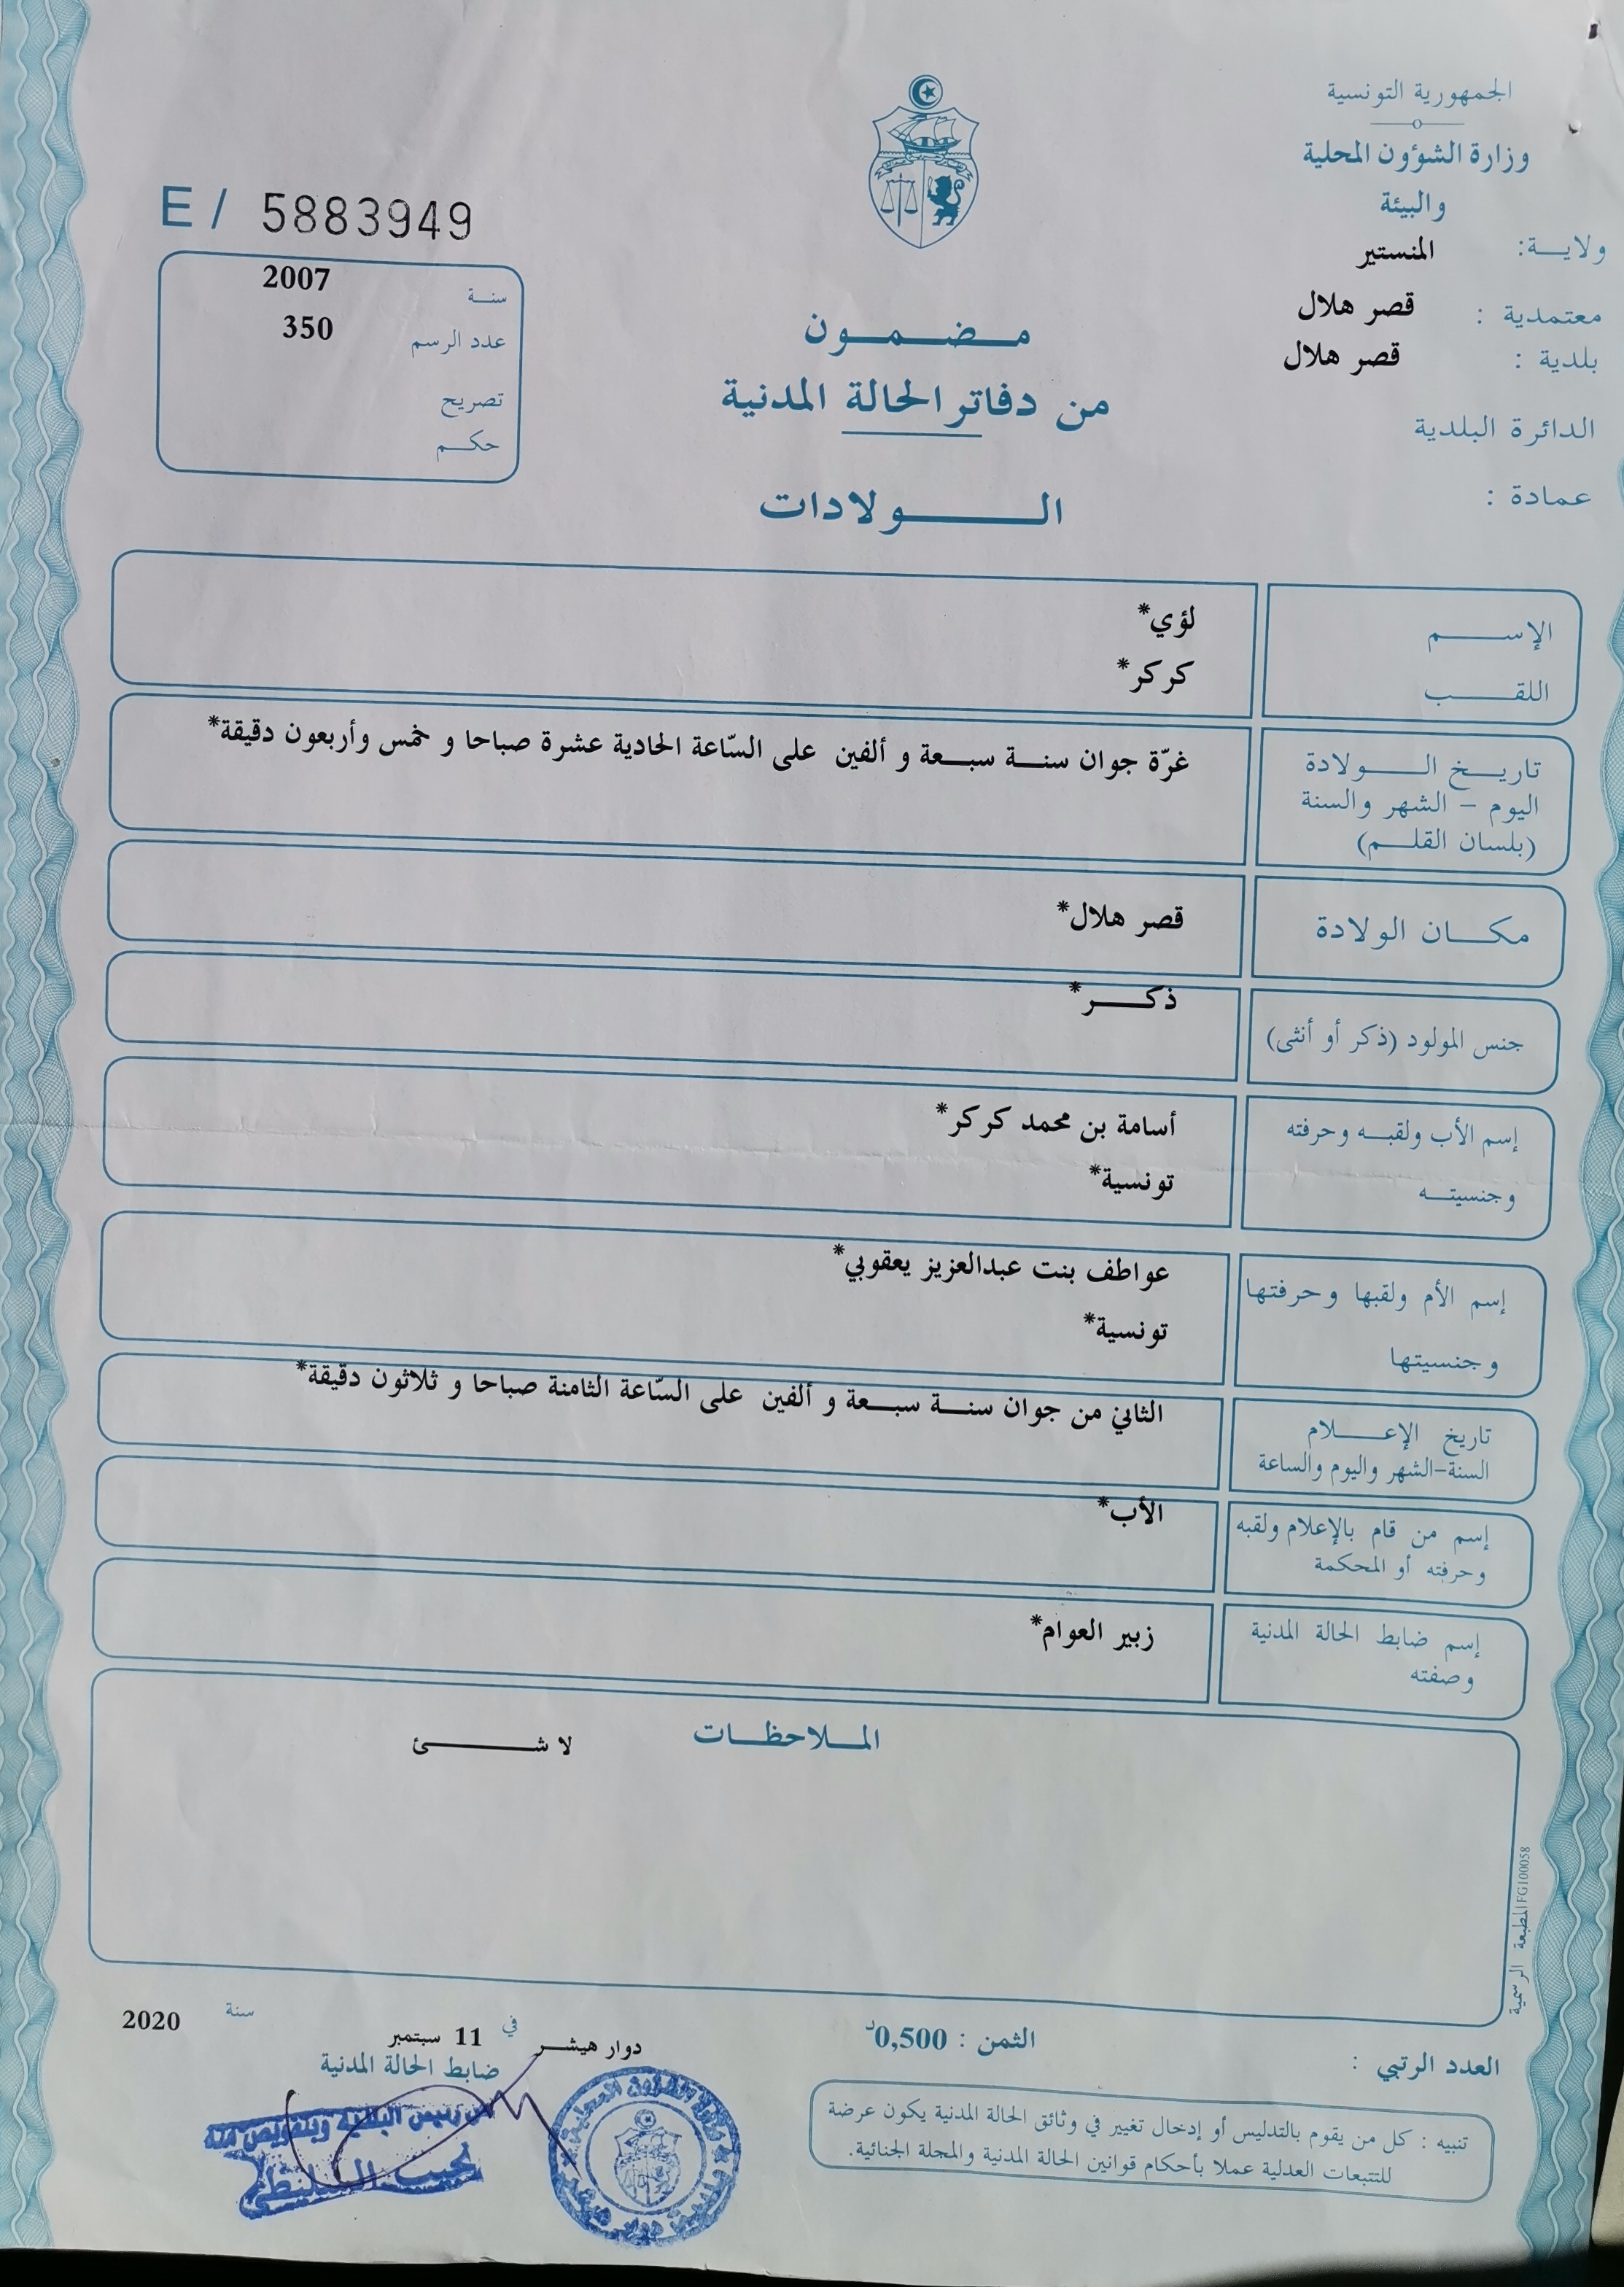 الجمهورية التونسية
وزارة الشؤون المحلية
والبيئة
ولايـــة: المنستير
معتمدية : قصر هلال
بلدية : قصر هلال
الدائرة البلدية
عمادة :
مـــضـــمـــون
من دفاتر الحالة المدنية
الـــــولادات
E / 5883949
سنــة 2007
عدد الرسم 350
تصريح
حكــم
الإســـــم لؤي*
اللقـــــب كركر*
تاريـــخ الـــــولادة غرّة جوان سنـــة سبـــعة و ألفين على السّاعة الحادية عشرة صباحا و خمس وأربعون دقيقة*
اليوم - الشهر والسنة
(بلسان القلـــم)
مكـــان الولادة قصر هلال*
جنس المولود (ذكر أو أنثى) ذكـــر*
إسم الأب ولقبـــه وحرفته أسامة بن محمد كركر*
وجنسيتـــه تونسية*
إسم الأم ولقبها وحرفتها عواطف بنت عبدالعزيز يعقوبي*
وجنسيتها تونسية*
تاريخ الإعـــــلام الثاني من جوان سنـــة سبـــعة و ألفين على السّاعة الثامنة صباحا و ثلاثون دقيقة*
السنة-الشهر واليوم والساعة
إسم من قام بالإعلام ولقبه الأب*
وحرفته أو المحكمة
إسم ضابط الحالة المدنية زبير العوام*
وصفته
المــلاحظـــات لا شـــــئ
المطبعة الرسمية FG100058
العدد الرتبي :
الثمن : 0,500د
دوار هيشـــر في 11 سبتمبر سنة 2020
ضابط الحالة المدنية
عن رئيس البلدية وبتفويض منه
تنبيه : كل من يقوم بالتدليس أو إدخال تغيير في وثائق الحالة المدنية يكون عرضة
للتتبعات العدلية عملا بأحكام قوانين الحالة المدنية والمجلة الجنائية.